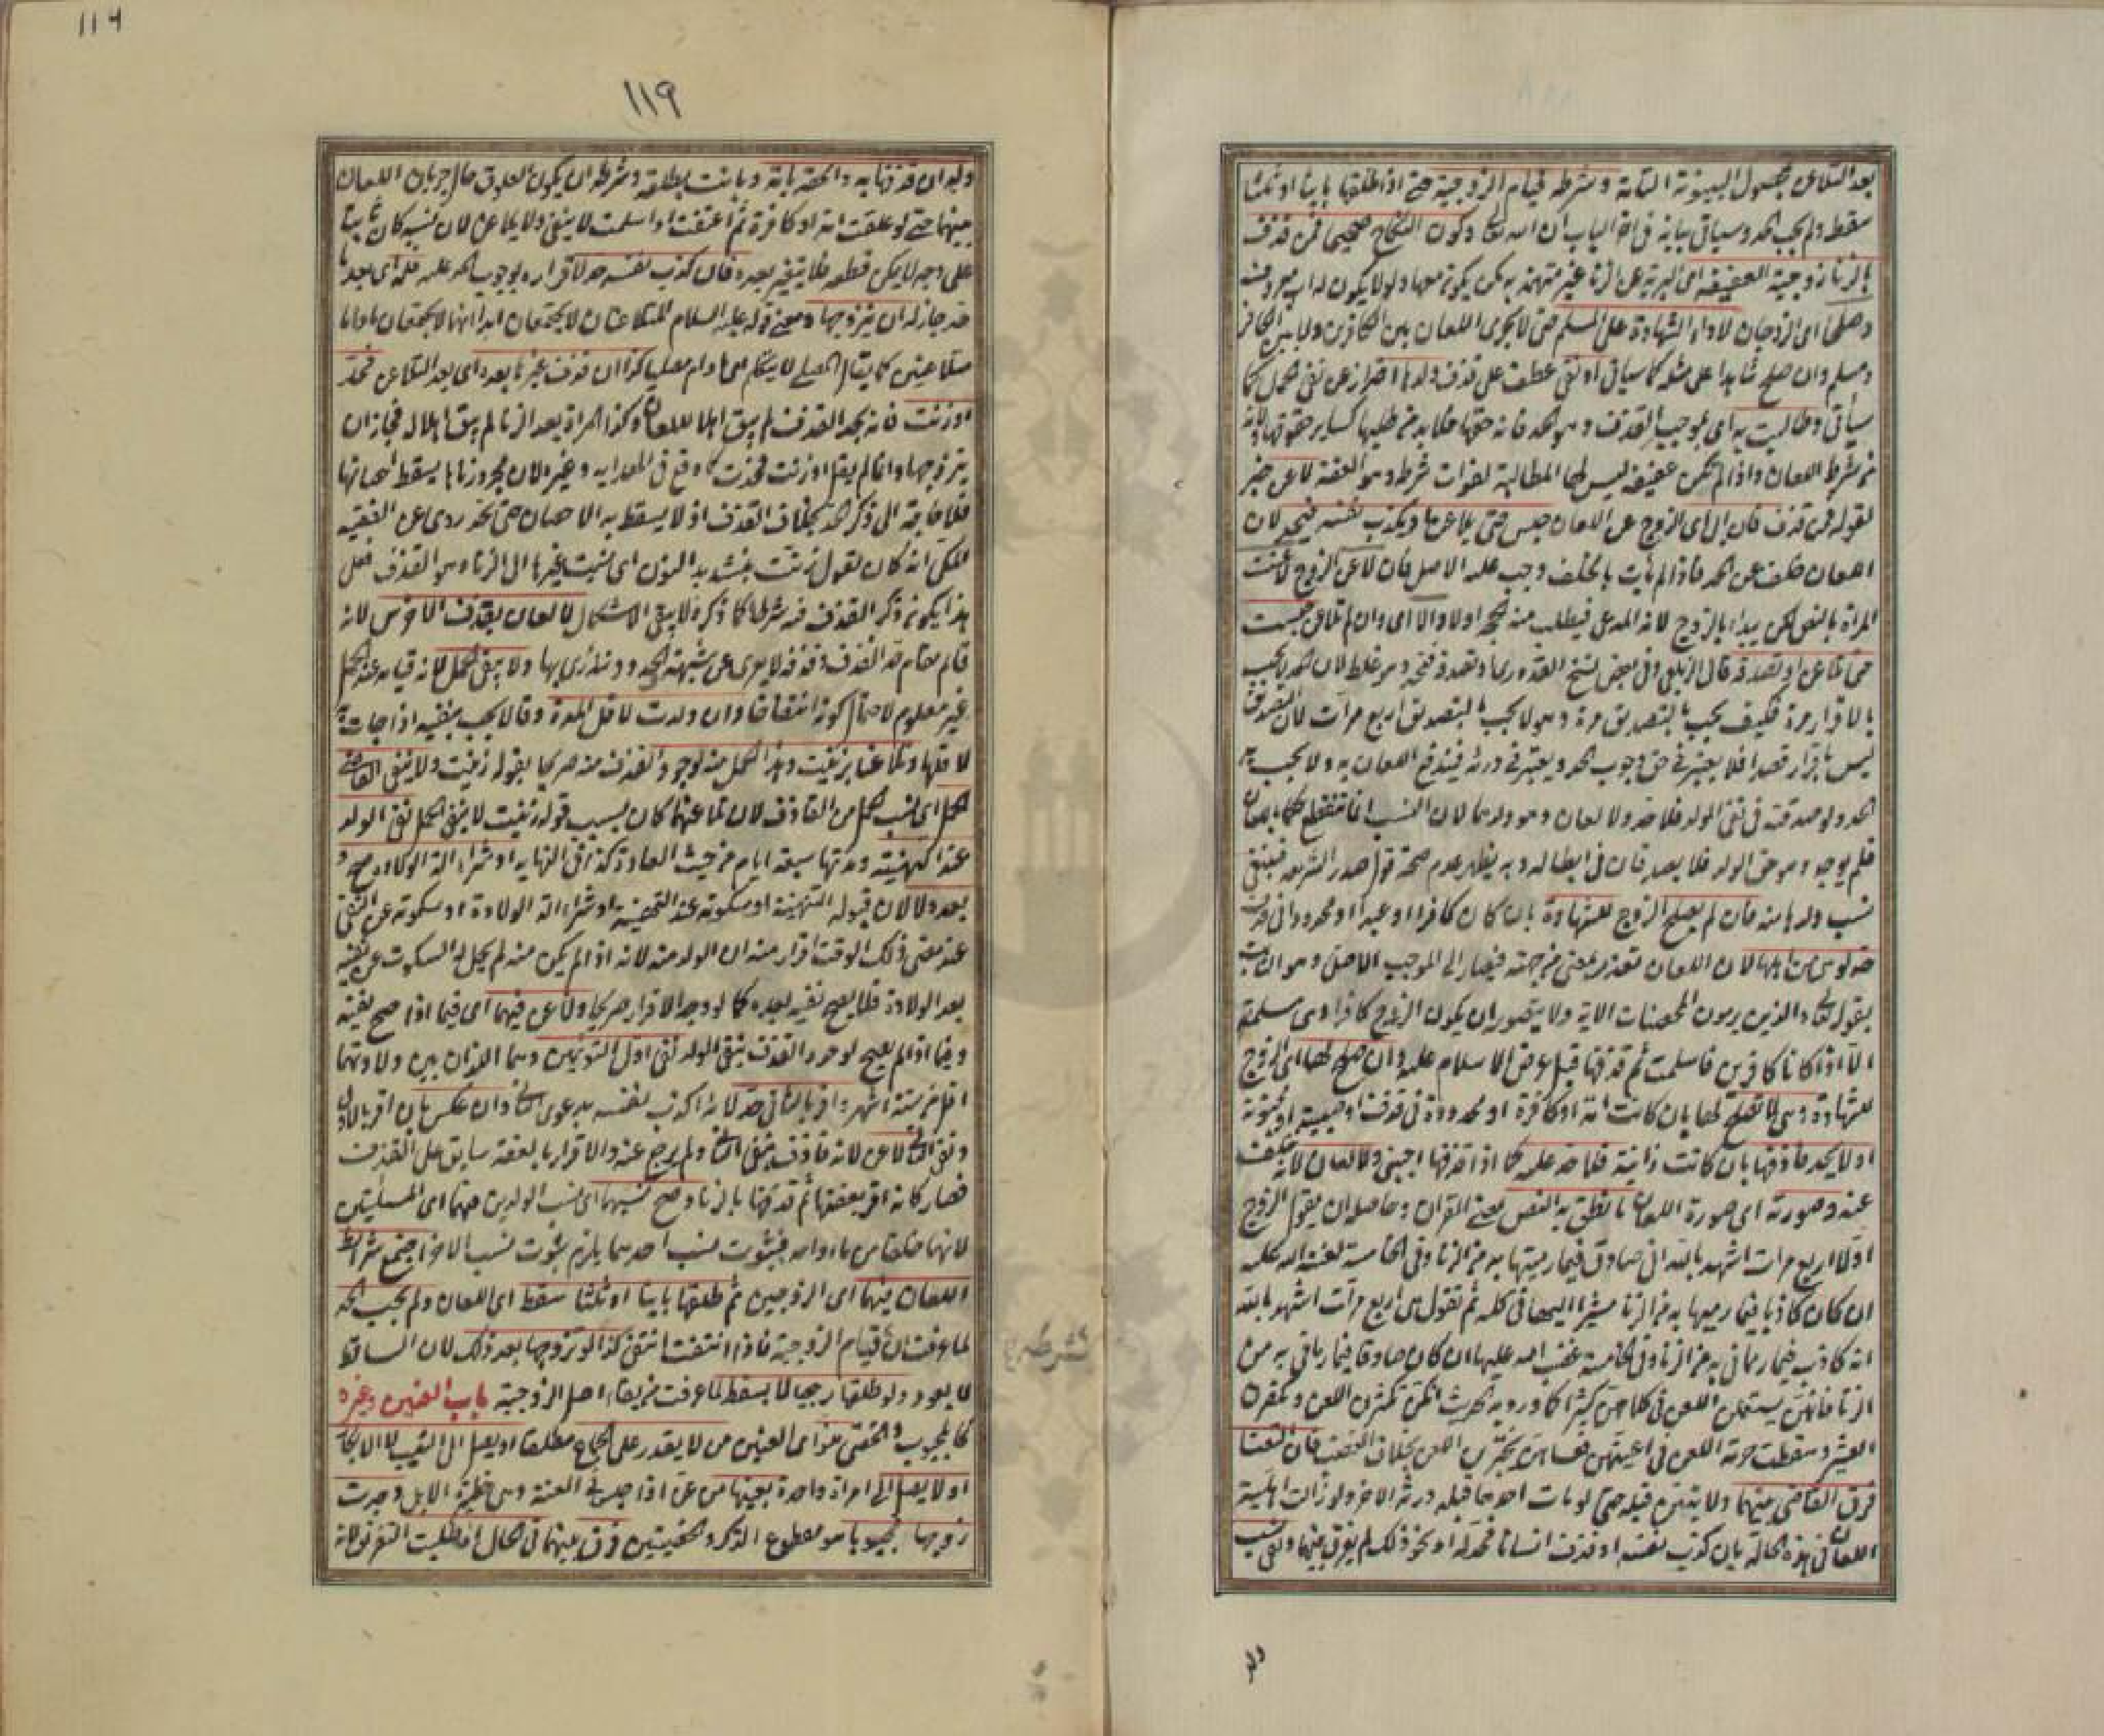 بعد التلاعن بحصول البينونة التامة وشرطه قيام الزوجية حتى اذا طلقها باينا او ثلثا
سقط ولم يجب الحد وسيأتي بيانه في اخر الباب ان شاء الله تعالى وكون النكاح صحيحا فمن قذف
بالزنا زوجته العفيفة اى البرية عن الزنا غير متهمة به كمن يكون معها ولد لا يكون له اب معروف
وصلحا اى الزوجان لاداء الشهادة على المسلم حتى لا يجرى اللعان بين الكافرين ولا بين الكافر
ومسلم وان صلح شاهدا على مثله كما سيأتي او نفى عطف على قذف ولدها احتراز عن نفى الحمل كما
سيأتي وطالبت به اى بموجب القذف وهو الحد فانه حقها فلا بد من طلبها كساير حقوقها ولانه
من شرط اللعان واذا لم تكن عفيفة ليس لها المطالبة لفوات شرطه وهو العفة لاعن خبر
لقوله فمن قذف فان ابى اى الزوج عن اللعان حبس حتى يلاعن او يكذب نفسه فيحد لان
اللعان خلف عن الحد فاذا لم يأت بالخلف وجب عليه الاصل فان لاعن الزوج لاعنت
المراة بالنص لكن يبدا بالزوج لانه المدعى فيطلب منه الحجة اولا والا اى وان لم تلاعن حبست
حتى تلاعن او تصدقه قال الزيلعي وفي بعض نسخ القدورى او تصدقه فتحد وهو غلط لان الحد لا يجب
بالاقرار مرة فكيف يجب بالتصديق مرة وهو لا يجب بالتصديق اربع مرات لان التصديق
ليس باقرار قصدا فلا يعتبر في حق وجوب الحد ويعتبر في درئه فيندفع اللعان به ولا يجب به
الحد ولو صدقته في نفى الولد فلا حد ولا لعان وهو ولدهما لان النسب انما ينقطع حكما باللعان
فلم يوجد وهو حق الولد فلا يصدقان في ابطاله وبه يظهر عدم صحة قول صدر الشريعة فينتفى
نسب ولدها منه فان لم يصلح الزوج للشهادة بان كان كافرا او عبدا او محدودا في قذف
حد لو هي من اهلها لان اللعان تعذر لمعنى من جهته فيصار الى الموجب الاصلى وهو الثابت
بقوله تعالى والذين يرمون المحصنات الاية ولا يتصور ان يكون الزوج كافرا وهي مسلمة
الا اذا كانا كافرين فاسلمت ثم قذفها قبل عرض الاسلام عليه وان صلح لها اى الزوج
للشهادة وهي لا تصلح لها بان كانت امة او كافرة او محدودة في قذف او صبية او مجنونة
او لا يحد قاذفها بان كانت زانية فلا حد عليه كما اذا قذفها اجنبي ولا لعان لانه خلف
عنه وصورته اى صورة اللعان ما نطق به النص يعنى القرآن وحاصله ان يقول الزوج
اولا اربع مرات اشهد بالله انى صادق فيما رميتها به من الزنا وفى الخامسة لعنة الله عليه
ان كان كاذبا فيما رميها به من الزنا مشيرا اليها فى كله ثم تقول هي اربع مرات اشهد بالله
انه كاذب فيما رمانى به من الزنا وفى الخامسة غضب الله عليها ان كان صادقا فيما رمانى به من
الزنا فانهن يستعملن اللعن فى كلامهن كثيرا كما ورد به الحديث انكن تكثرن اللعن وتكفرن
العشير وسقطت حرمة اللعن فى اعينهن فعساهن يجترين اللعن بخلاف الغضب فان التعنا
فرق القاضى بينهما ولا تبين قبله حتى لو مات احدهما قبله ورثه الاخر ولو زالت اهلية
اللعان فى هذه الحالة بان كذب نفسه او قذف انسانا فحد له او نحو ذلك لم يفرق بينهما ونفى نسب
ولد
١١٩
ولده ان قذفها به والحقه بامه وبانت بطلقة وشرطه ان يكون العلوق حال جريان اللعان
بينهما حتى لو علقت امة او كافرة ثم اعتقت او اسلمت لا ينفى ولا يلاعن لان نسبه كان ثابتا
على وجه لا يمكن قطعه فلا يتغير بعده فان كذب نفسه حد لاقراره بوجوب الحد عليه فله اى بعد ما
حد جاز له ان يتزوجها ومعنى قوله عليه السلام المتلاعنان لا يجتمعان ابدا انهما لا يجتمعان ما داما
متلاعنين كما يقال المصلى لا يتكلم اى ما دام مصليا كذا ان قذف غيرها بعده اى بعد التلاعن فحد
او زنت فانه بحد القذف لم يبق اهلا للعان وكذا المراة بعد الزنا لم يبق اهلا له فجاز ان
يتزوجها وانما لم يقل او زنت فحدت كما وقع فى الهداية وغيره لان مجرد زناها يسقط احصانها
فلا حاجة الى ذكر الحد بخلاف القذف اذ لا يسقط به الاحصان حتى تحد روى عن الفقيه
المكى انه كان يقول زنت بتشديد النون اى نسبت غيرها الى الزنا وهو القذف فعلى
هذا يكون ذكر القذف فيه شرطا كما ذكره فلا يبقى الاشكال لا لعان بقذف الاخرس لانه
قائم مقام حد القذف وقذفه لا يعرى عن شبهة والحدود تندرئ بها ولا بنفى الحمل لانه قيامه عند الحمل
غير معلوم لاحتمال كونه انتفاخا وان ولدت لاقل المدة وقالا يجب بنفيه اذا جاءت به
لاقلها وتلاعنا بزنيت وهذا الحمل منه لوجود القذف منه صريحا بقوله زنيت ولا ينفى القاضى
الحمل اى نسب الحمل من القاذف لان تلاعنهما كان بسبب قوله زنيت لا بنفى الحمل نفى الولد
عند التهنية ومدتها سبعة ايام من حيث العادة كذا فى النهاية او شراء آلة الولادة صح و
بعده لا لان قبوله التهنية او سكوته عند التهنية او شراء آلة الولادة او سكوته عن النفى
عند مضى ذلك الوقت اقرار منه ان الولد منه لانه اذا لم يكن منه لم يحل له السكوت عن نفيه
بعد الولادة فلا يصح نفيه بعده كما لو وجد الاقرار صريحا ولاعن فيهما اى فيما اذا صح نفيه
وفيما اذا لم يصح لوجود القذف بنفى الولد نفى اول التوأمين وهما اللذان بين ولادتهما
اقل من ستة اشهر واقر بالثانى حد لانه اكذب نفسه بدعوى الثانى وان عكس بان اقر بالاول
ونفى الثانى لاعن لانه قاذف بنفى الثانى ولم يرجع عنه والاقرار بالعفة سابق على القذف
فصار كانه اقر بعفتها ثم قذفها بالزنا وصح نسبهما اى نسب الولدين فيهما اى المسئلتين
لانهما خلقا من ماء واحد فبثبوت نسب احدهما يلزم ثبوت نسب الاخر اجتمع شرائط
اللعان بينهما اى الزوجين ثم طلقها باينا او ثلثا سقط اى اللعان ولم يجب الحد
لما عرفت ان قيام الزوجية فاذا انتفت انتفى كذا لو تزوجها بعد ذلك لان الساقط
لا يعود ولو طلقها رجعيا لا يسقط لما عرفت من بقاء اصل الزوجية باب العنين وغيره
كالمجبوب والخصى هو اى العنين من لا يقدر على الجماع مطلقا او يصل الى الثيب لا الابكار
او لا يصل الى امراة واحدة بعينها من عن اذا حبس فى العنة وهى حظيرة الابل وجدت
زوجها مجبوبا هو مقطوع الذكر والخصيتين فرق بينهما فى الحال ان طلبت التفريق لانه